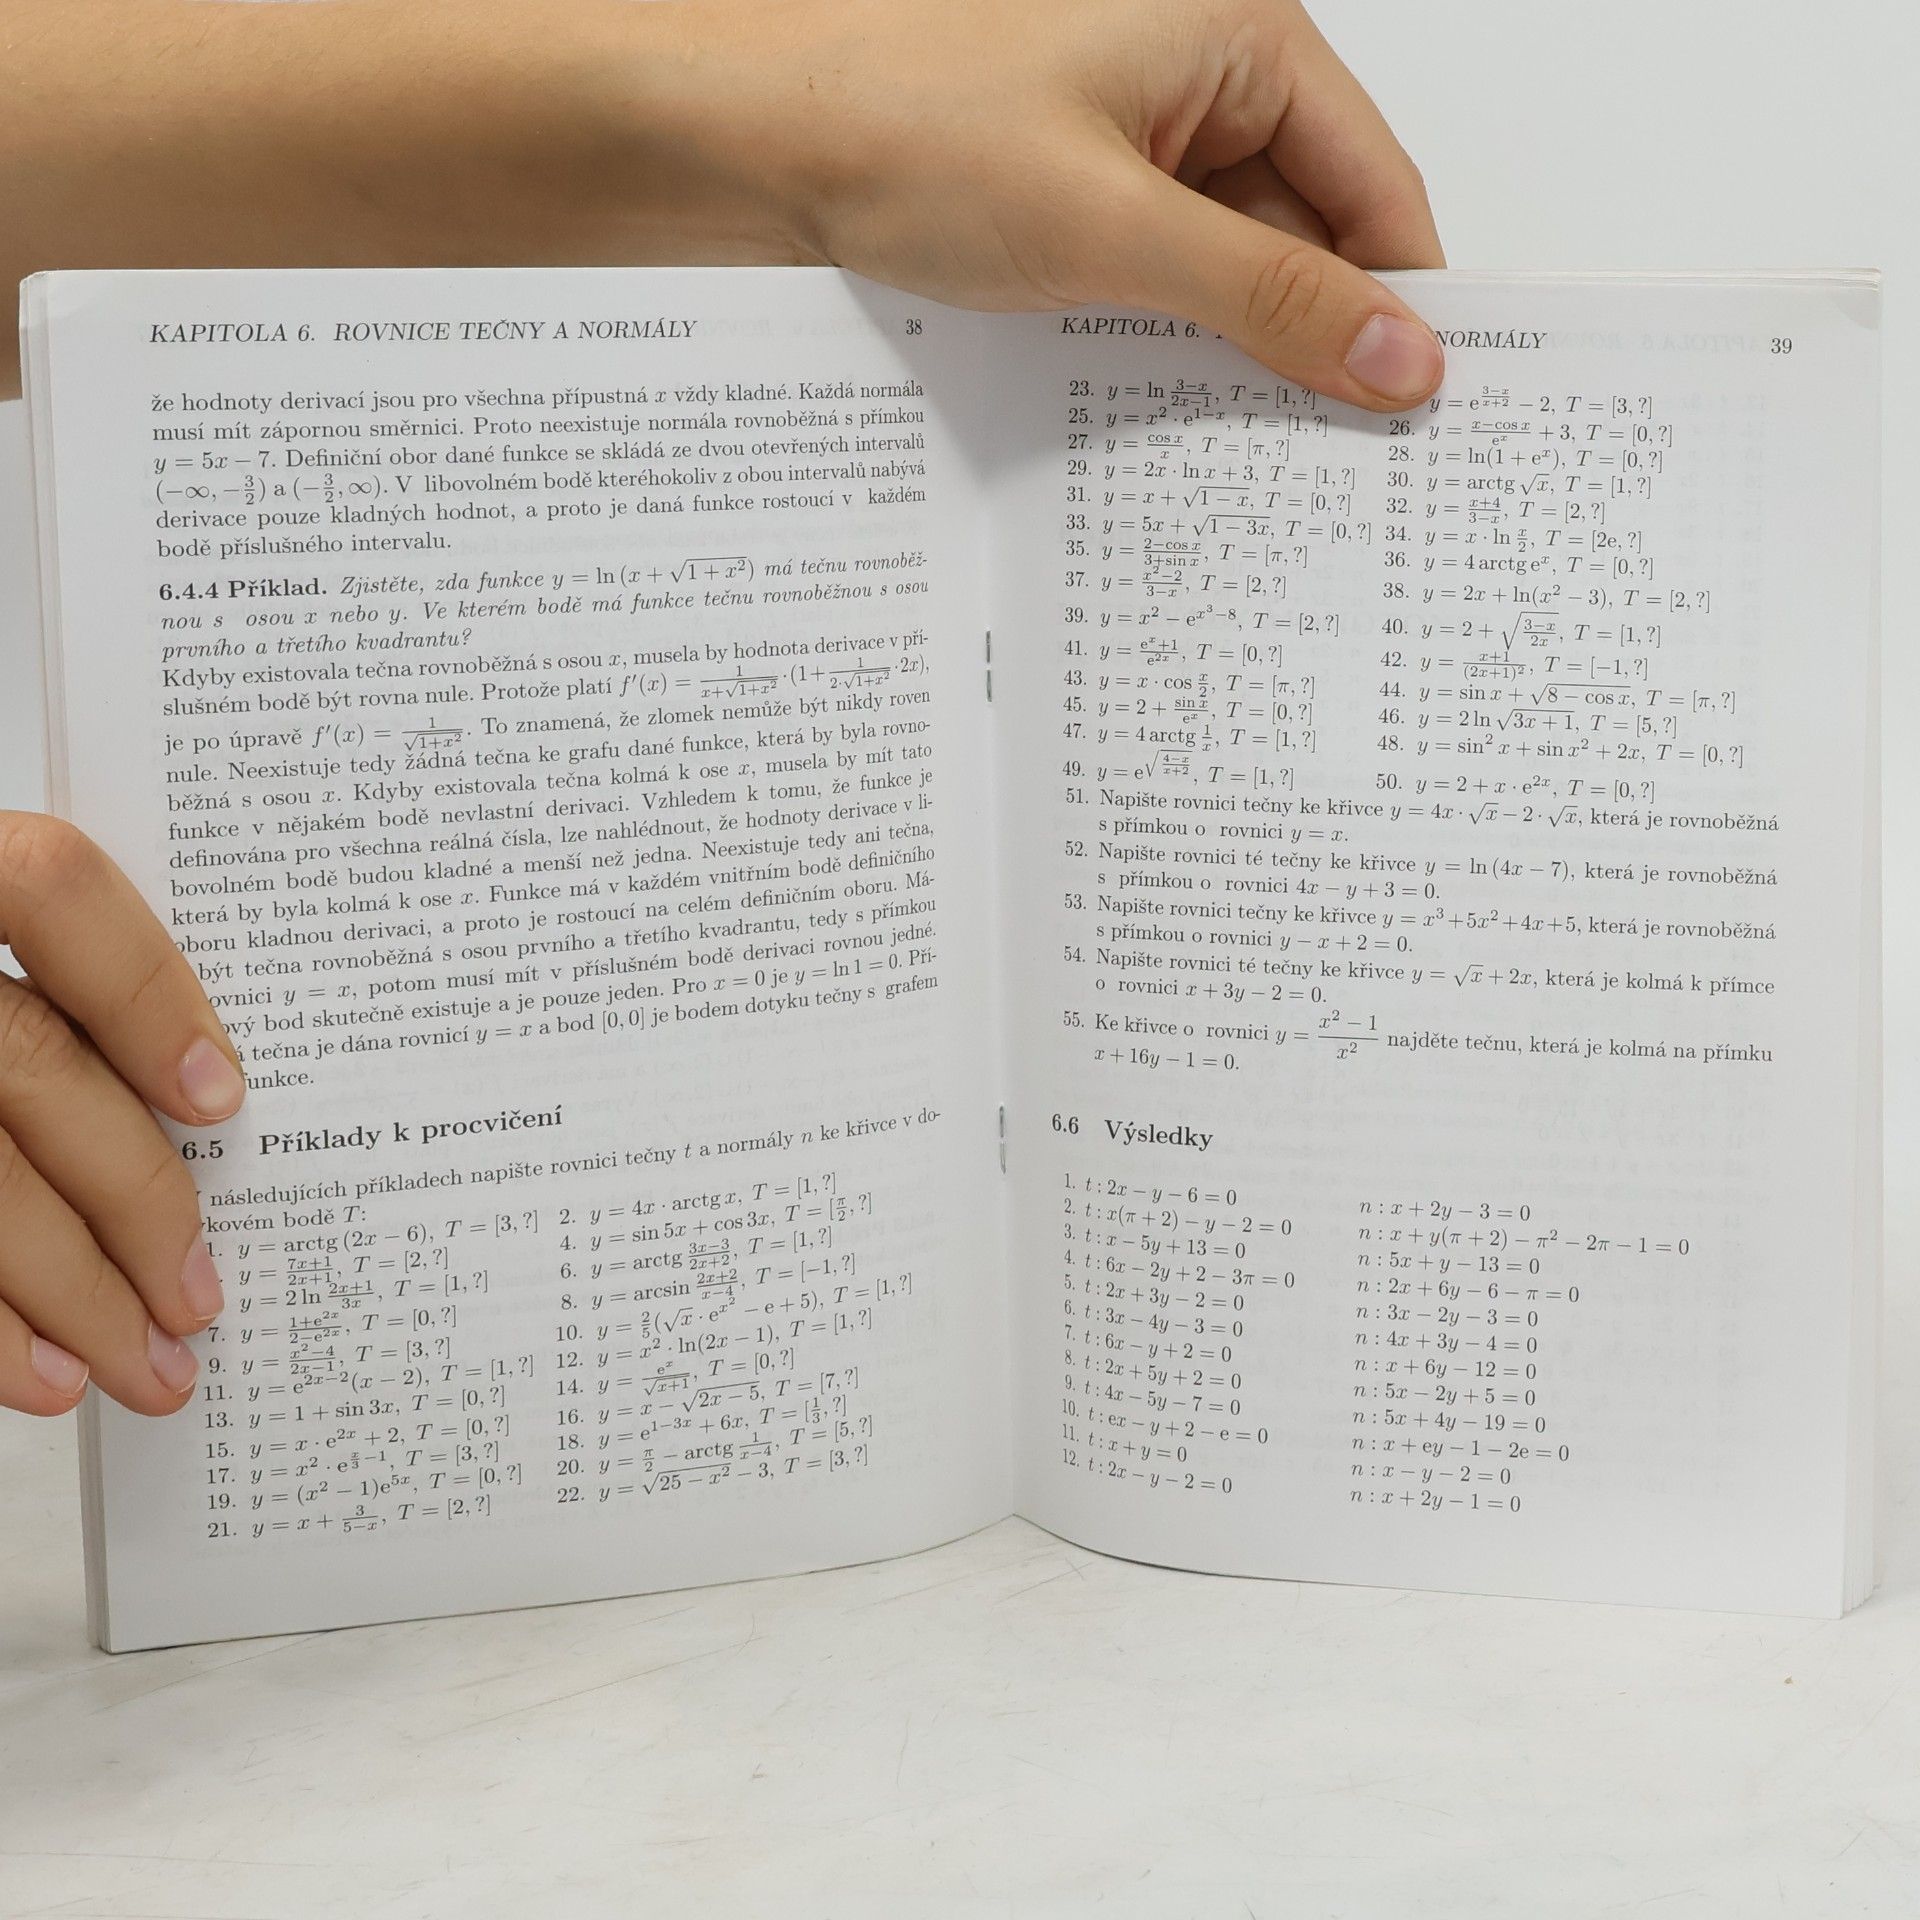 KAPITOLA 6. ROVNICE TEČNY A NORMÁLY 38
že hodnoty derivací jsou pro všechna přípustná x vždy kladné. Každá normála
musí mít zápornou směrnici. Proto neexistuje normála rovnoběžná s přímkou
y = 5x − 7. Definiční obor dané funkce se skládá ze dvou otevřených intervalů
(−∞, −3/2) a (−3/2, ∞). V libovolném bodě kteréhokoliv z obou intervalů nabývá
derivace pouze kladných hodnot, a proto je daná funkce rostoucí v každém
bodě příslušného intervalu.
6.4.4 Příklad. Zjistěte, zda funkce y = ln (x + √(1 + x²)) má tečnu rovnoběž-
nou s osou x nebo y. Ve kterém bodě má funkce tečnu rovnoběžnou s osou
prvního a třetího kvadrantu?
Kdyby existovala tečna rovnoběžná s osou x, musela by hodnota derivace v pří-
slušném bodě být rovna nule. Protože platí f′(x) = 1/(x+√(1+x²)) · (1 + 1/(2·√(1+x²)) · 2x),
je po úpravě f′(x) = 1/√(1+x²). To znamená, že zlomek nemůže být nikdy roven
nule. Neexistuje tedy žádná tečna ke grafu dané funkce, která by byla rovno-
běžná s osou x. Kdyby existovala tečna kolmá k ose x, musela by mít tato
funkce v nějakém bodě nevlastní derivaci. Vzhledem k tomu, že funkce je
definována pro všechna reálná čísla, lze nahlédnout, že hodnoty derivace v li-
bovolném bodě budou kladné a menší než jedna. Neexistuje tedy ani tečna,
která by byla kolmá k ose x. Funkce má v každém vnitřním bodě definičního
oboru kladnou derivaci, a proto je rostoucí na celém definičním oboru. Má-
být tečna rovnoběžná s osou prvního a třetího kvadrantu, tedy s přímkou
ovnici y = x, potom musí mít v příslušném bodě derivaci rovnou jedné.
ový bod skutečně existuje a je pouze jeden. Pro x = 0 je y = ln 1 = 0. Pří-
á tečna je dána rovnicí y = x a bod [0, 0] je bodem dotyku tečny s grafem
unkce.
6.5 Příklady k procvičení
následujících příkladech napište rovnici tečny t a normály n ke křivce v do-
kovém bodě T:
1. y = arctg (2x − 6), T = [3, ?] 2. y = 4x · arctg x, T = [1, ?]
y = (7x+1)/(2x+1), T = [2, ?] 4. y = sin 5x + cos 3x, T = [π/2, ?]
y = 2 ln (2x+1)/(3x), T = [1, ?] 6. y = arctg (3x−3)/(2x+2), T = [1, ?]
7. y = (1+e²ˣ)/(2−e²ˣ), T = [0, ?] 8. y = arcsin (2x+2)/(x−4), T = [−1, ?]
9. y = (x²−4)/(2x−1), T = [3, ?] 10. y = 2/5(√x · e^(x²) − e + 5), T = [1, ?]
11. y = e^(2x−2)(x − 2), T = [1, ?] 12. y = x² · ln(2x − 1), T = [1, ?]
13. y = 1 + sin 3x, T = [0, ?] 14. y = eˣ/√(x+1), T = [0, ?]
15. y = x · e²ˣ + 2, T = [0, ?] 16. y = x − √(2x − 5), T = [7, ?]
17. y = x² · e^(x/3−1), T = [3, ?] 18. y = e^(1−3x) + 6x, T = [1/3, ?]
19. y = (x² − 1)e⁵ˣ, T = [0, ?] 20. y = π/2 − arctg 1/(x−4), T = [5, ?]
21. y = x + 3/(5−x), T = [2, ?] 22. y = √(25 − x²) − 3, T = [3, ?]
KAPITOLA 6. NORMÁLY 39
23. y = ln (3−x)/(2x−1), T = [1, ?] y = e^((3−x)/(x+2)) − 2, T = [3, ?]
25. y = x² · e^(1−x), T = [1, ?] 26. y = (x−cos x)/eˣ + 3, T = [0, ?]
27. y = cos x/x, T = [π, ?] 28. y = ln(1 + eˣ), T = [0, ?]
29. y = 2x · ln x + 3, T = [1, ?] 30. y = arctg √x, T = [1, ?]
31. y = x + √(1 − x), T = [0, ?] 32. y = (x+4)/(3−x), T = [2, ?]
33. y = 5x + √(1 − 3x), T = [0, ?] 34. y = x · ln x/2, T = [2e, ?]
35. y = (2−cos x)/(3+sin x), T = [π, ?] 36. y = 4 arctg eˣ, T = [0, ?]
37. y = (x²−2)/(3−x), T = [2, ?] 38. y = 2x + ln(x² − 3), T = [2, ?]
39. y = x² − e^(x³−8), T = [2, ?] 40. y = 2 + √((3−x)/(2x)), T = [1, ?]
41. y = (eˣ+1)/e²ˣ, T = [0, ?] 42. y = (x+1)/(2x+1)², T = [−1, ?]
43. y = x · cos x/2, T = [π, ?] 44. y = sin x + √(8 − cos x), T = [π, ?]
45. y = 2 + sin x/eˣ, T = [0, ?] 46. y = 2 ln √(3x + 1), T = [5, ?]
47. y = 4 arctg 1/x, T = [1, ?] 48. y = sin² x + sin x² + 2x, T = [0, ?]
49. y = e^√((4−x)/(x+2)), T = [1, ?] 50. y = 2 + x · e²ˣ, T = [0, ?]
51. Napište rovnici tečny ke křivce y = 4x · √x − 2 · √x, která je rovnoběžná
s přímkou o rovnici y = x.
52. Napište rovnici té tečny ke křivce y = ln (4x − 7), která je rovnoběžná
s přímkou o rovnici 4x − y + 3 = 0.
53. Napište rovnici tečny ke křivce y = x³ + 5x² + 4x + 5, která je rovnoběžná
s přímkou o rovnici y − x + 2 = 0.
54. Napište rovnici té tečny ke křivce y = √x + 2x, která je kolmá k přímce
o rovnici x + 3y − 2 = 0.
55. Ke křivce o rovnici y = (x² − 1)/x² najděte tečnu, která je kolmá na přímku
x + 16y − 1 = 0.
6.6 Výsledky
1. t : 2x − y − 6 = 0 n : x + 2y − 3 = 0
2. t : x(π + 2) − y − 2 = 0 n : x + y(π + 2) − π² − 2π − 1 = 0
3. t : x − 5y + 13 = 0 n : 5x + y − 13 = 0
4. t : 6x − 2y + 2 − 3π = 0 n : 2x + 6y − 6 − π = 0
5. t : 2x + 3y − 2 = 0 n : 3x − 2y − 3 = 0
6. t : 3x − 4y − 3 = 0 n : 4x + 3y − 4 = 0
7. t : 6x − y + 2 = 0 n : x + 6y − 12 = 0
8. t : 2x + 5y + 2 = 0 n : 5x − 2y + 5 = 0
9. t : 4x − 5y − 7 = 0 n : 5x + 4y − 19 = 0
10. t : ex − y + 2 − e = 0 n : x + ey − 1 − 2e = 0
11. t : x + y = 0 n : x − y − 2 = 0
12. t : 2x − y − 2 = 0 n : x + 2y − 1 = 0